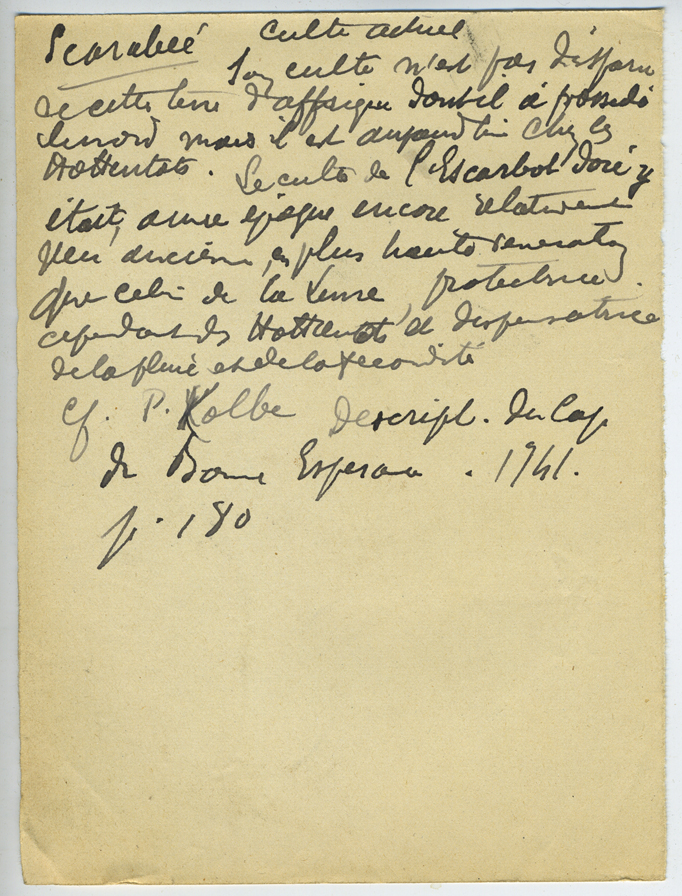 Scarabée culte actuel
Son culte n'est pas disparu
de cette terre d'Affrique dont il a possédé
le nord mais il est aujourd'hui chez les
Hottentots. Le culte de l'Escarbot doré y
était, a une époque encore relativement
peu ancienne, en plus haute veneration
que celui de la Lune, protectrice
cependant des Hottentots et dispensatrice
de la pluie et de la fecondité
cf. P. Kolbe Descript. du Cap
de Bonne Esperance. 1741.
p. 180